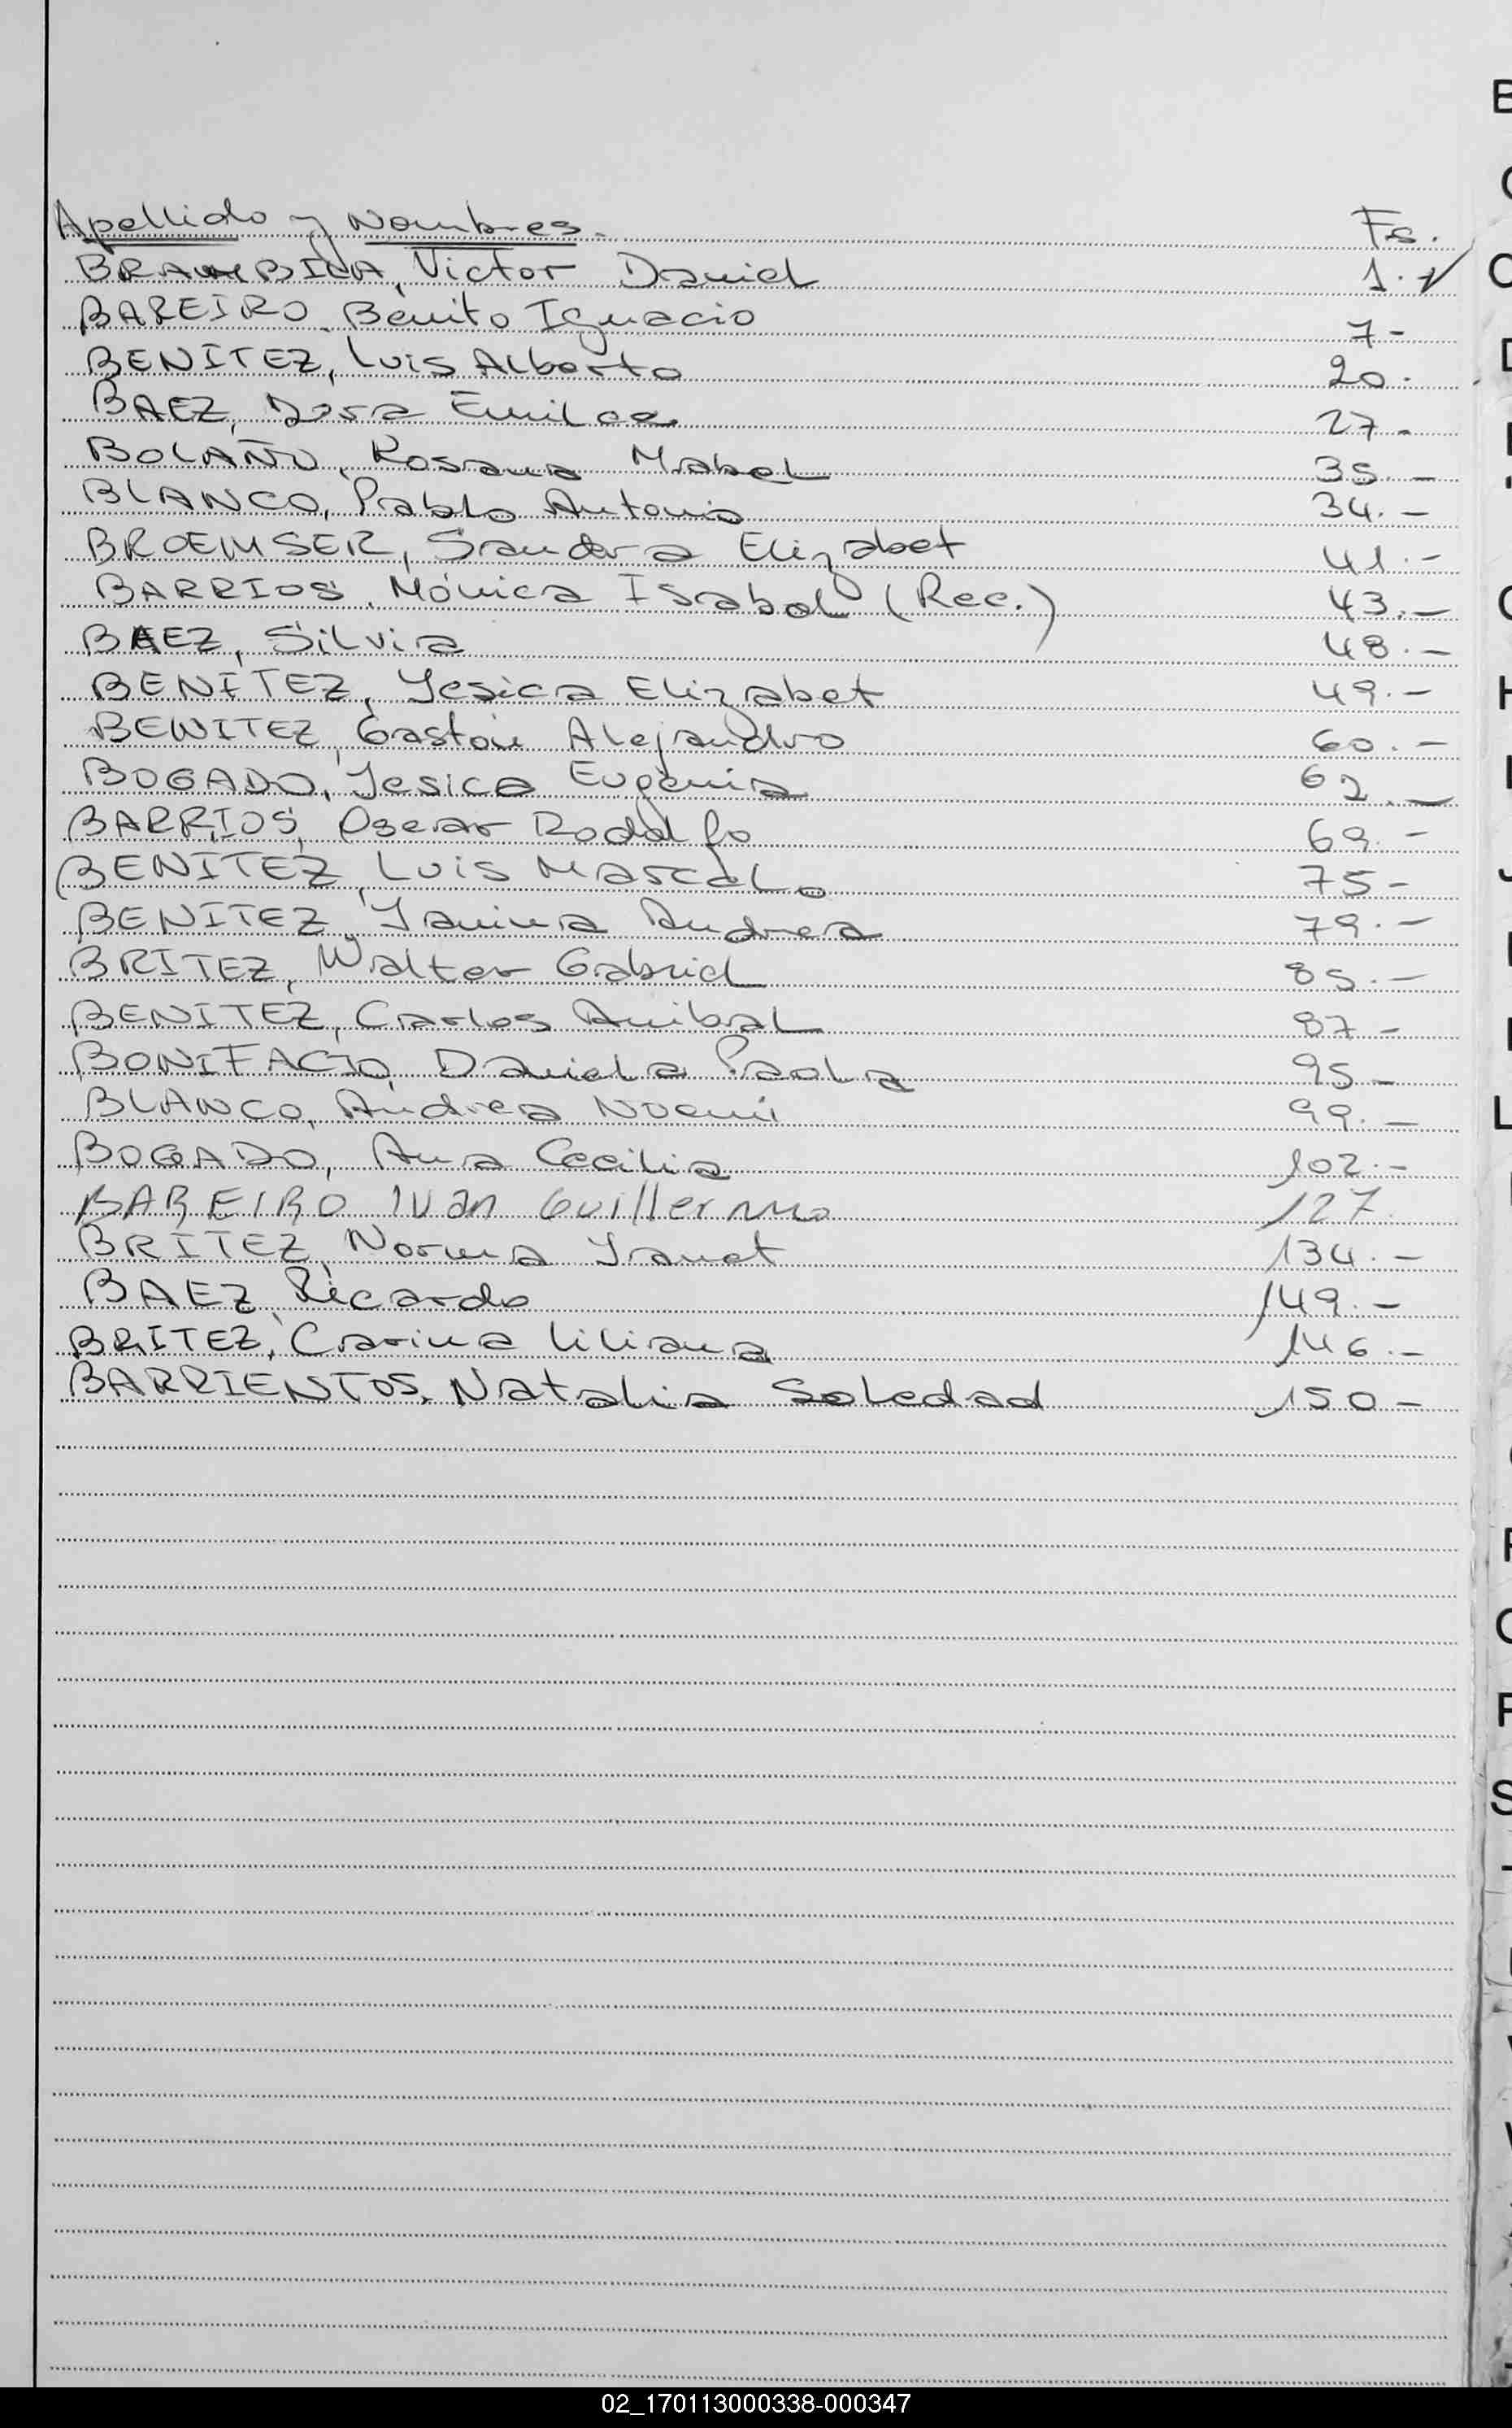 Apellido y Nombres. Fs.
BRAMBILA, Victor Daniel 1.
BAREIRO, Benito Ignacio 7-
BENITEZ, Luis Alberto 20.
BAEZ, Dora Emilce 27-
BOLAÑO, Rosana Mabel 35.-
BLANCO, Pablo Antonio 34.-
BROEMSER, Sandra Elizabet 41.-
BARRIOS, Mónica Isabel (Rec.) 43.-
BAEZ, Silvia 48.-
BENITEZ, Yesica Elizabet 49.-
BENITEZ, Gastón Alejandro 60.-
BOGADO, Yesica Eugenia 62.-
BARRIOS, Oscar Rodolfo 69.-
BENITEZ, Luis Marcelo 75-
BENITEZ, Yanina Andrea 79.-
BRITEZ, Walter Gabriel 85.-
BENITEZ, Carlos Anibal 87-
BONIFACIO, Daniela Paola 95-
BLANCO, Andrea Noemi 99.-
BOGADO, Ana Cecilia 102.-
BAREIRO Ivan Guillermo 127.
BRITEZ, Norma Yanet 134.-
BAEZ, Ricardo 149.-
BRITEZ, Carina Liliana 146.-
BARRIENTOS, Natalia Soledad 150-
02_170113000338-000347